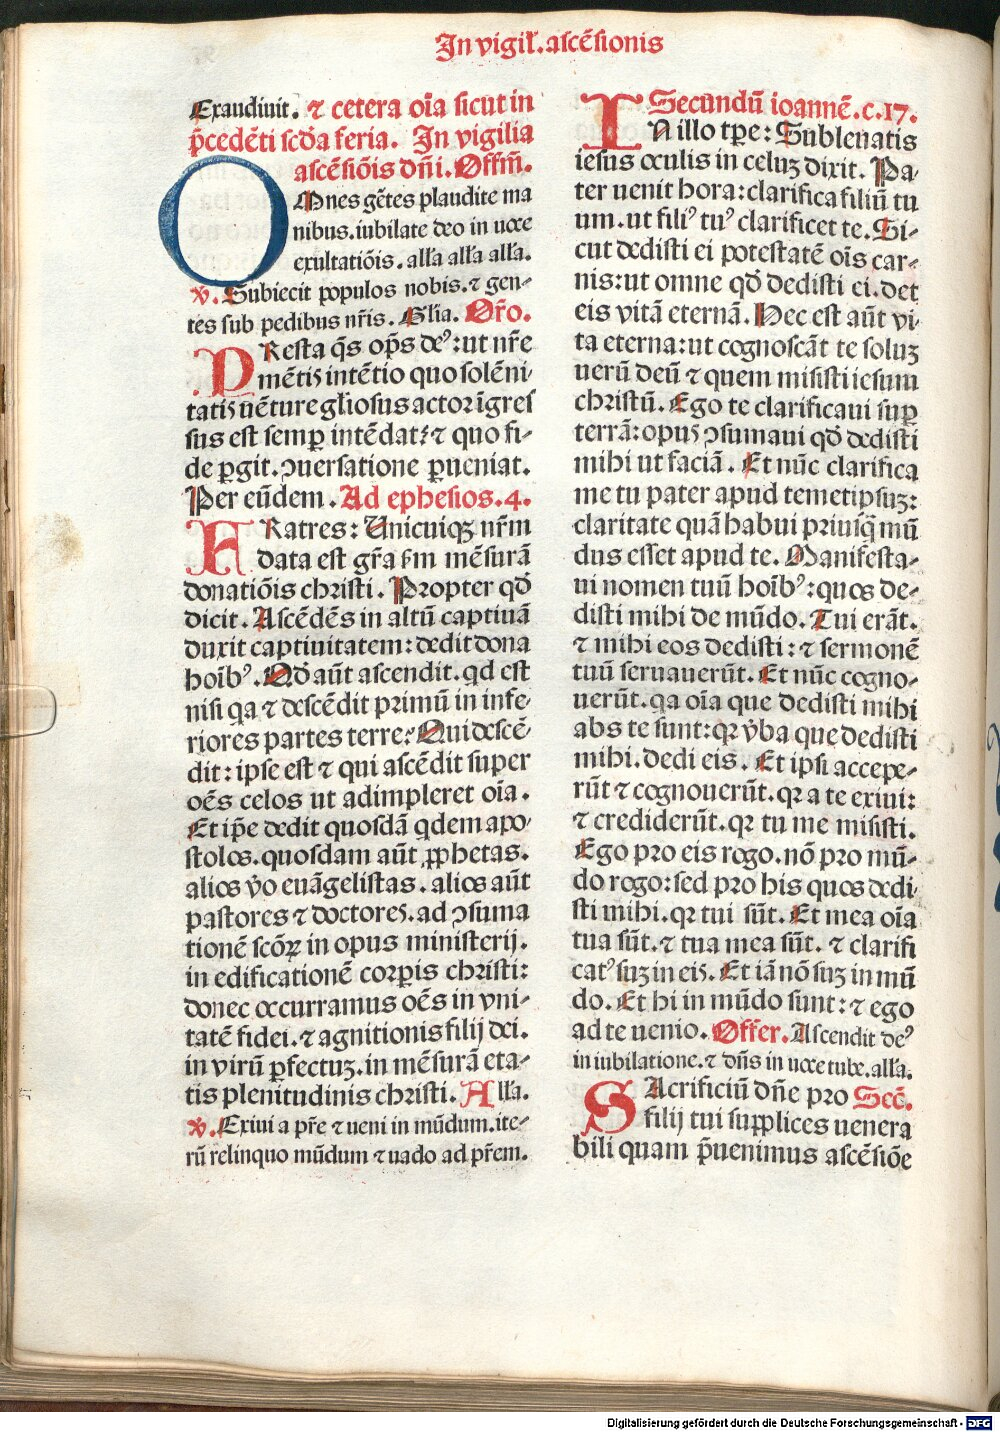 In vigil̄. ascēsionis
Exaudiuit. ⁊ cetera oīa sicut in
p̄cedēti scđa feria. In vigilia
ascēsiōis dn̄i. Offm̄.
OMnes gētes plaudite ma
nibus. iubilate deo in uoce
exultatiōis. alła alła alła.
℣. Subiecit populos nobis. ⁊ gen-
tes sub pedibus nr̄is. Glīa. Or̄o.
PResta q̄s op̄s deꝰ: ut nr̄e
mētis intētio quo solēni-
tatis uēture gl̄iosus actor īgres
sus est semꝑ intēdat: ⁊ quo fi-
de ꝑgit. ꝯuersatione ꝑueniat.
Per eūdem. Ad ephesios. 4.
FRatres: Unicuiqꝫ nr̄m
data est gr̄a s̄m mēsurā
donatiōis christi. Propter qđ
dicit. Ascēdēs in altū captiuā
duxit captiuitatem: dedit dona
hoībꝰ. Qđ aūt ascendit. qd est
nisi qa ⁊ descēdit primū in infe-
riores partes terre? Qui descē-
dit: ipse est ⁊ qui ascēdit super
oēs celos ut adimpleret oīa.
Et ip̄e dedit quosdā qdem apo-
stolos. quosdam aūt ꝓphetas.
alios v̄o euāgelistas. alios aūt
pastores ⁊ doctores. ad ꝯsuma
tionē scōꝝ in opus ministerij.
in edificationē corꝑis christi:
donec occurramus oēs in vni-
tatē fidei. ⁊ agnitionis filij dei.
in virū ꝑfectuꝫ. in mēsurā eta-
tis plenitudinis christi. Alła.
℣. Exiui a pr̄e ⁊ ueni in mūdum. ite-
rū relinquo mūdum ⁊ uado ad pr̄em.
Secundū ioannē. c. 17.
IN illo tp̄e: Subleuatis
iesus oculis in celuꝫ dixit. Pa-
ter uenit hora: clarifica filiū tu
um. ut filiꝰ tuꝰ clarificet te. Si-
cut dedisti ei potestatē oīs car-
nis: ut omne qđ dedisti ei. det
eis vitā eternā. Hec est aūt vi-
ta eterna: ut cognoscāt te soluꝫ
uerū deū ⁊ quem misisti iesum
christū. Ego te clarificaui suꝑ
terrā: opus ꝯsumaui qđ dedisti
mihi ut faciā. Et nūc clarifica
me tu pater apud temetipsuꝫ:
claritate quā habui priusq̄ mū
dus esset apud te. Manifesta-
ui nomen tuū hoībꝰ: quos de-
disti mihi de mūdo. Tui erāt.
⁊ mihi eos dedisti: ⁊ sermonē
tuū seruauerūt. Et nūc cogno-
uerūt. qa oīa que dedisti mihi
abs te sunt: qꝛ v̄ba que dedisti
mihi. dedi eis. Et ipsi accepe-
rūt ⁊ cognouerūt. qꝛ a te exiui:
⁊ crediderūt. qꝛ tu me misisti.
Ego pro eis rogo. nō pro mū-
do rogo: sed pro his quos dedi-
sti mihi. qꝛ tui sūt. Et mea oīa
tua sūt. ⁊ tua mea sūt. ⁊ clarifi
catꝰ suꝫ in eis. Et iā nō suꝫ in mū
do. Et hi in mūdo sunt: ⁊ ego
ad te uenio. Offer. Ascendit deꝰ
in iubilatione. ⁊ dn̄s in uoce tube. alła.
SAcrificiū dn̄e pro Secr̄.
filij tui supplices uenera
bili quam p̄uenimus ascēsiōe
Digitalisierung gefördert durch die Deutsche Forschungsgemeinschaft - DFG